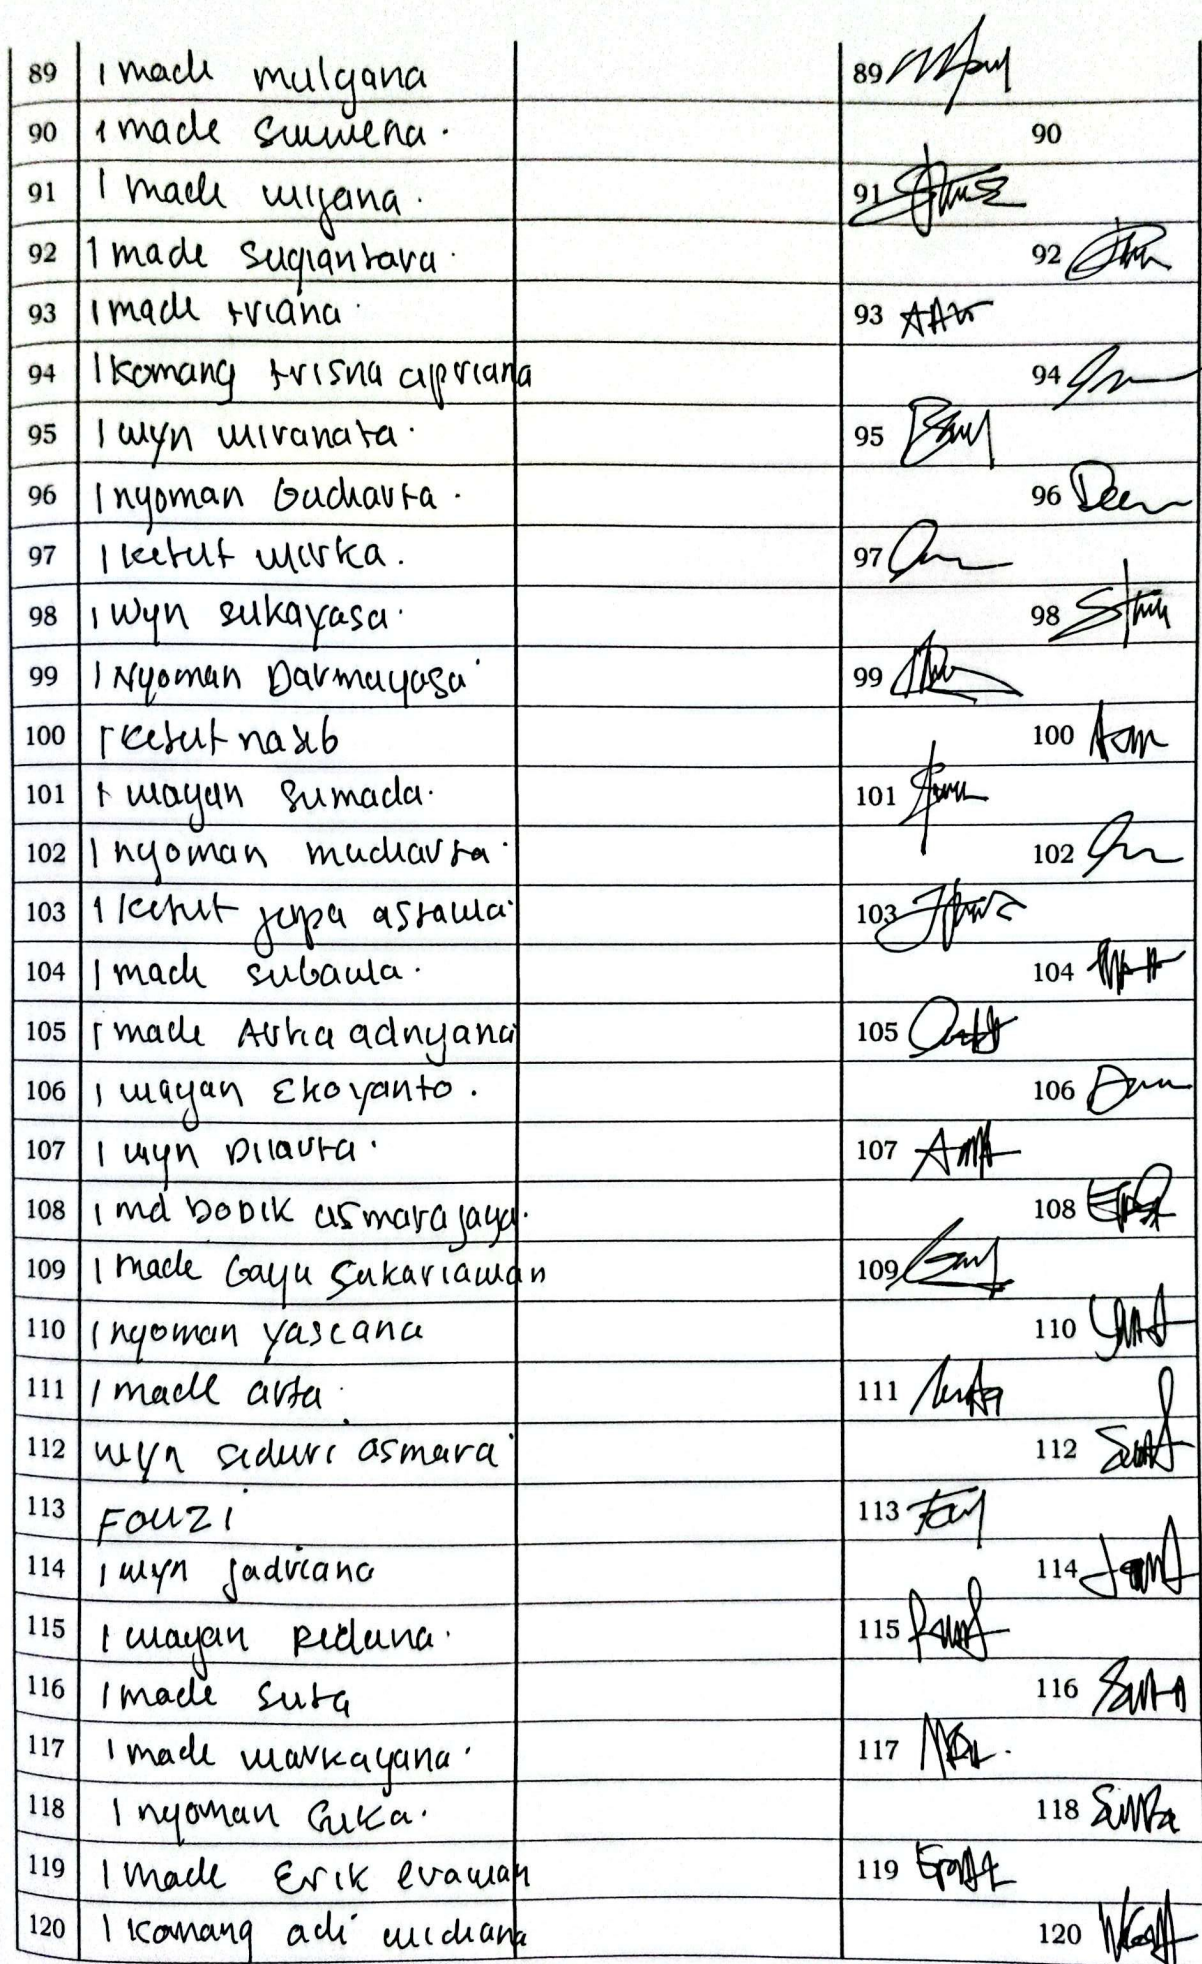 89 I made mulyana 89
90 I made Suwena. 90
91 I made wiyana. 91
92 I made Sugiantara. 92
93 I made triana. 93
94 I Komang trisna apriana 94
95 I wyn wiranata. 95
96 I nyoman Budiarta. 96
97 I ketut wirka. 97
98 I wyn sukayasa. 98
99 I Nyoman Darmayasa 99
100 I Ketut nasib 100
101 I wayan Sumada. 101
102 I nyoman mudiarta. 102
103 I Ketut jepa astawa 103
104 I made subawa. 104
105 I made Arka adnyana 105
106 I wayan Ekoyanto. 106
107 I wyn Dilarta. 107
108 I md Dodik asmara jaya. 108
109 I made Bayu Sukariawan 109
110 I nyoman yasiana 110
111 I made arta. 111
112 wyn siduri asmara 112
113 FOUZI 113
114 I wyn jadriana 114
115 I wayan Reduna. 115
116 I made suta 116
117 I made warkayana. 117
118 I nyoman Suka. 118
119 I made Erik erawan 119
120 I Komang adi widiana 120